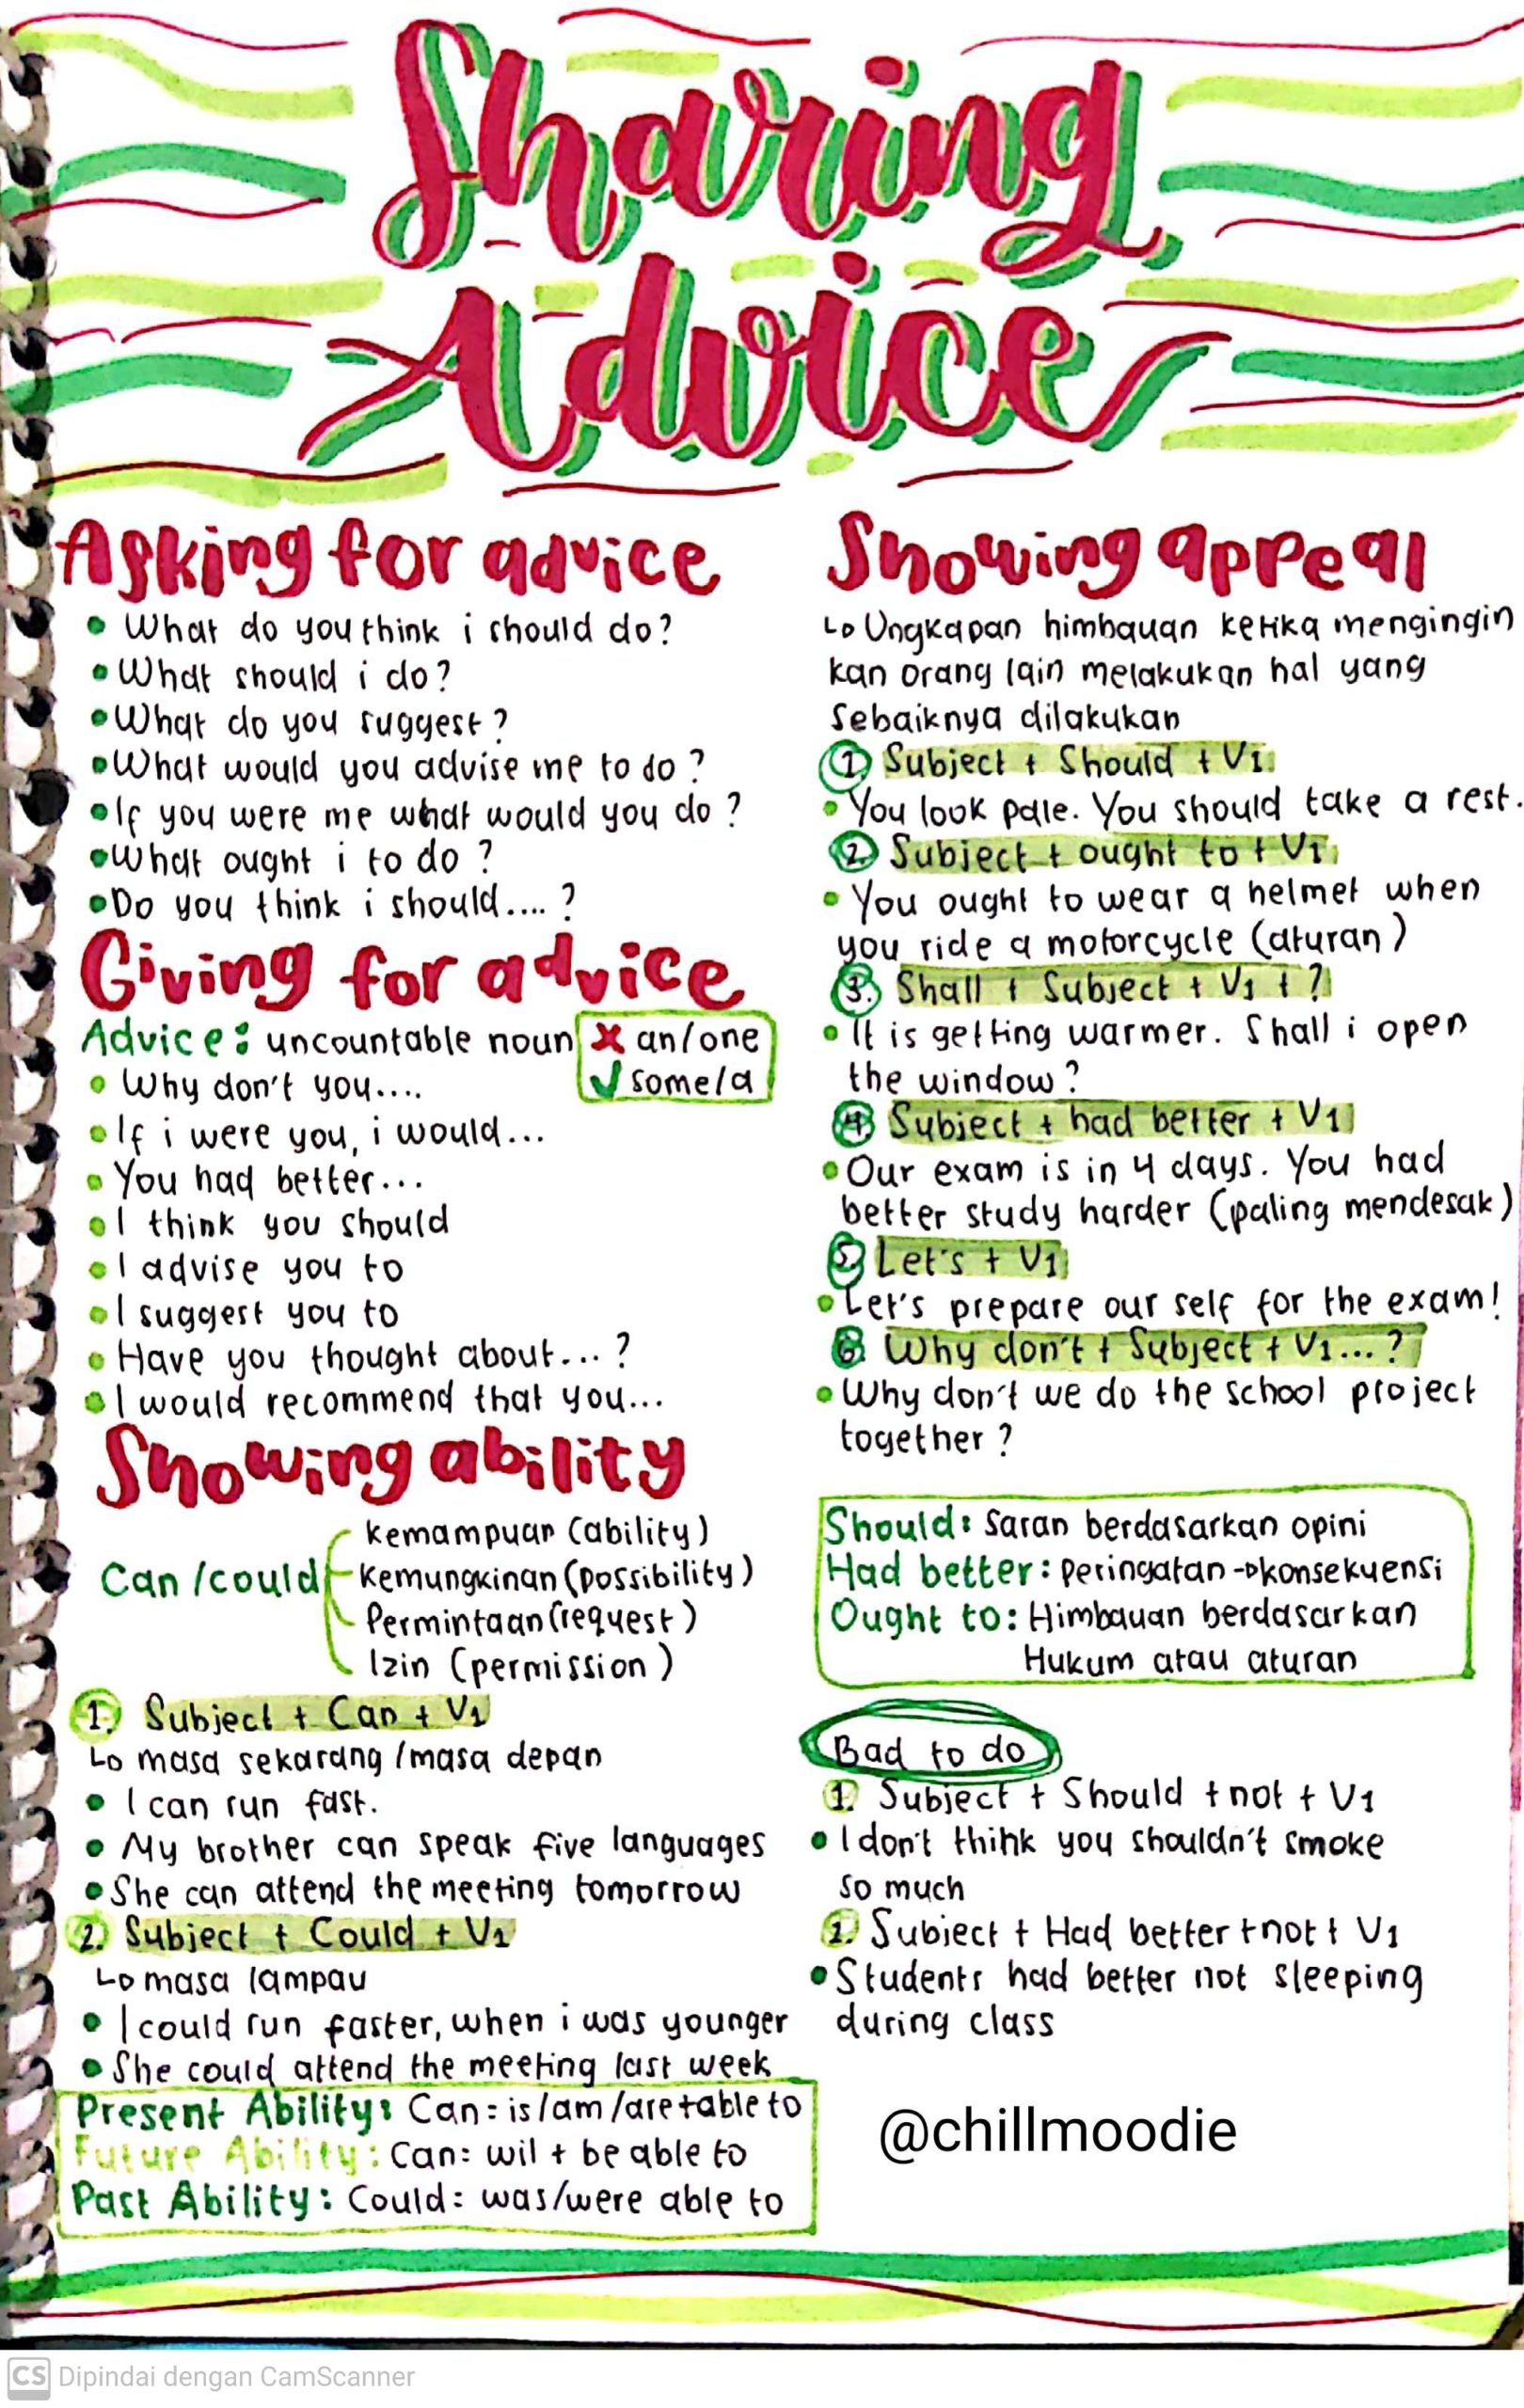 Sharing
Advice
Asking for advice
• What do you think i should do?
• What should i do?
• What do you suggest?
• What would you advise me to do?
• If you were me what would you do?
• What ought i to do?
• Do you think i should....?
Giving for advice
Advice: uncountable noun ✗ an/one
✓ some/a
• Why don't you....
• If i were you, i would...
• You had better...
• I think you should
• I advise you to
• I suggest you to
• Have you thought about...?
• I would recommend that you...
Showing ability
Can/could
kemampuan (ability)
kemungkinan (possibility)
Permintaan (request)
Izin (permission)
1. Subject + Can + V1
↳ masa sekarang/masa depan
• I can run fast.
• My brother can speak five languages
• She can attend the meeting tomorrow
2. Subject + Could + V1
↳ masa lampau
• I could run faster, when i was younger
• She could attend the meeting last week
Present Ability: Can = is/am/are+able to
Future Ability: Can = wil + be able to
Past Ability: Could = was/were able to
Showing appeal
↳ Ungkapan himbauan ketika mengingin
kan orang lain melakukan hal yang
sebaiknya dilakukan
1. Subject + Should + V1
• You look pale. You should take a rest.
2. Subject + ought to + V1
• You ought to wear a helmet when
you ride a motorcycle (aturan)
3. Shall + Subject + V1 + ?
• It is getting warmer. Shall i open
the window?
4. Subject + had better + V1
• Our exam is in 4 days. You had
better study harder (paling mendesak)
5. Let's + V1
• Let's prepare our self for the exam!
6. Why don't + Subject + V1...?
• Why don't we do the school project
together?
Should: Saran berdasarkan opini
Had better: Peringatan → konsekuensi
Ought to: Himbauan berdasarkan
Hukum atau aturan
Bad to do
1. Subject + Should + not + V1
• I don't think you shouldn't smoke
so much
2. Subject + Had better + not + V1
• Students had better not sleeping
during class
@chillmoodie
CS Dipindai dengan CamScanner